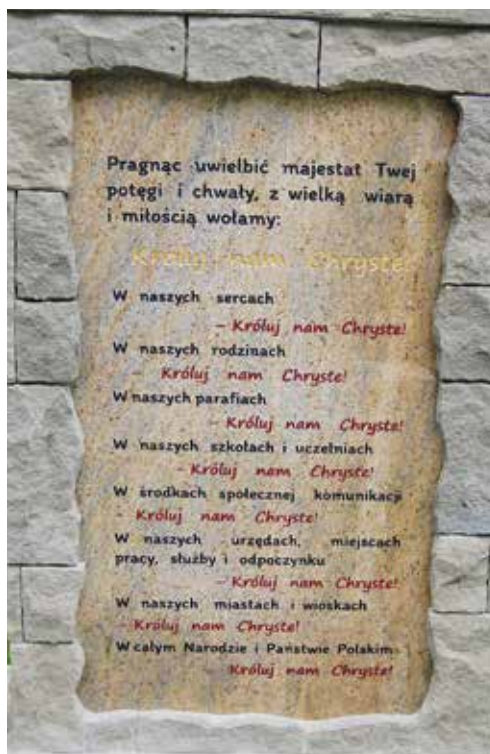 Pragnąc uwielbić majestat Twej
potęgi i chwały, z wielką wiarą
i miłością wołamy:
Króluj nam Chryste!
W naszych sercach
- Króluj nam Chryste!
W naszych rodzinach
- Króluj nam Chryste!
W naszych parafiach
- Króluj nam Chryste!
W naszych szkołach i uczelniach
- Króluj nam Chryste!
W środkach społecznej komunikacji
- Króluj nam Chryste!
W naszych urzędach, miejscach
pracy, służby i odpoczynku
- Króluj nam Chryste!
W naszych miastach i wioskach
- Króluj nam Chryste!
W całym Narodzie i Państwie Polskim
- Króluj nam Chryste!